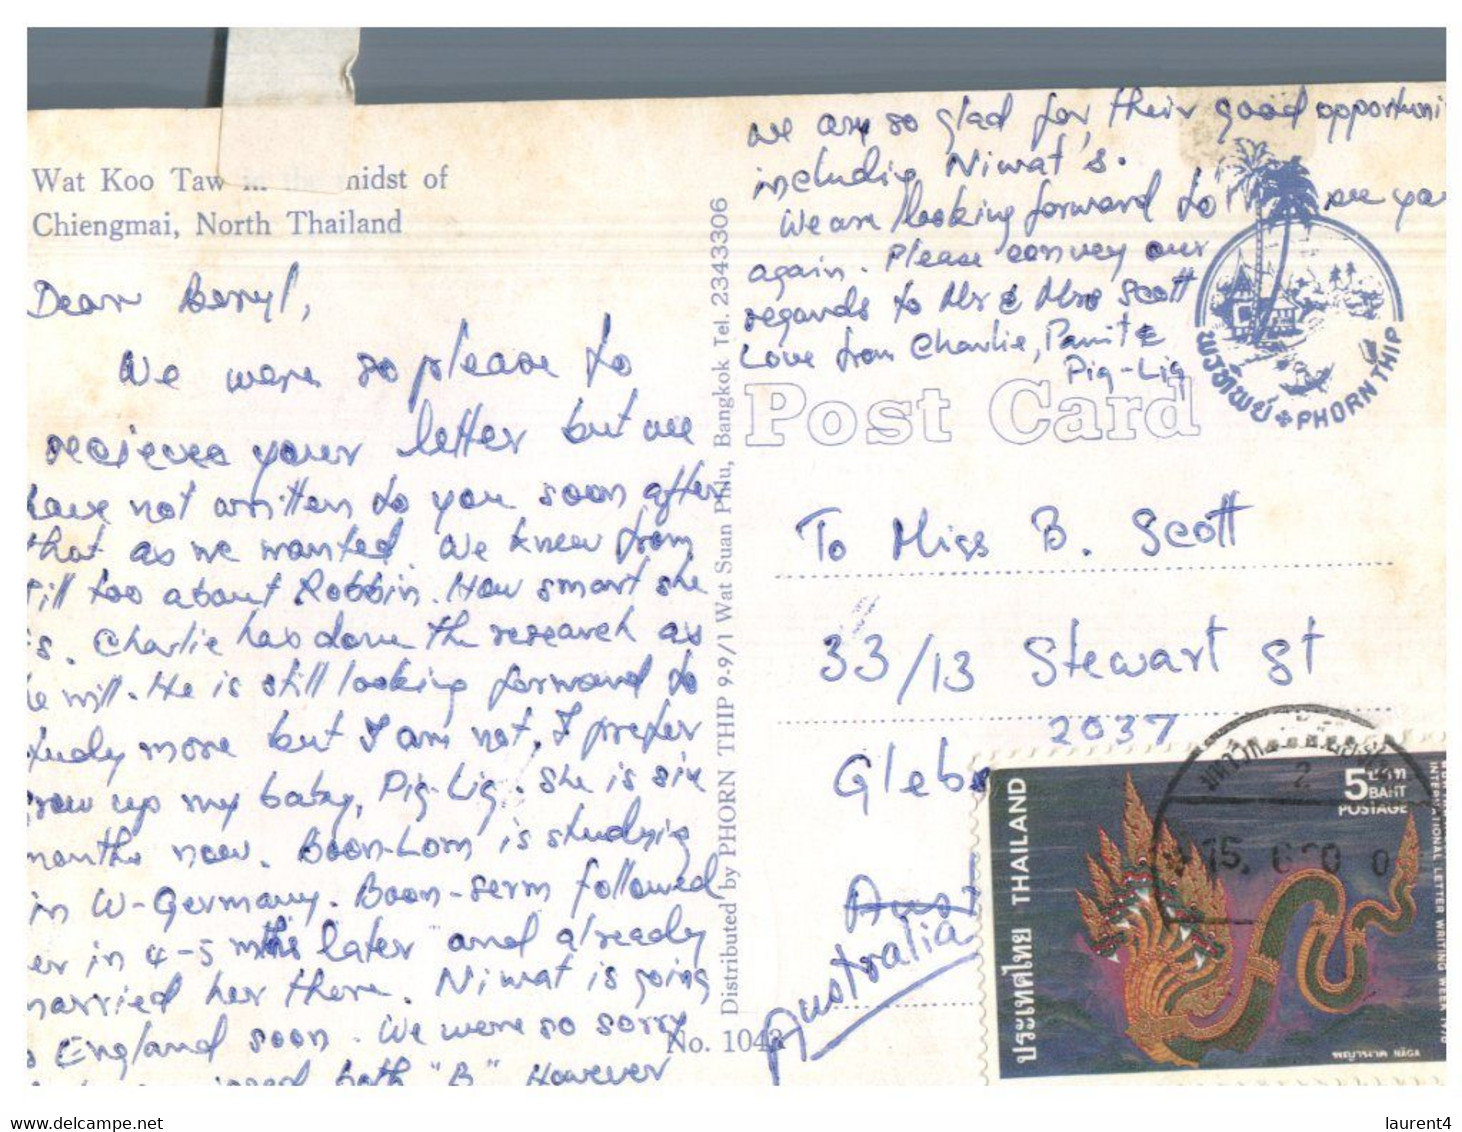 Wat Koo Taw in the midst of
Chiengmai, North Thailand
Dear Beryl,
We were so please to
recieved your letter but we
have not written to you soon after
that as we wanted. We knew from
Pill too about Robbin. How smart she
is. Charlie has done the research as
he will. He is still looking forward to
study more but I am not, I prefer
grow up my baby, Pig-Lig. She is six
months now. Boon-Lom is studying
in W-Germany. Boon-Serm followed
er in 4-5 mths later and already
married her there. Niwat is going
to England soon. We were so sorry
both "B" However
we are so glad for their good opportuni
including Niwat's.
We are looking forward to see you
again. Please convey our
regards to Mr & Mrs Scott
Love from Charlie, Panit &
Pig-Lig
พรทิพย์ PHORN THIP
Post Card
Distributed by PHORN THIP 9-9/1 Wat Suan Phlu, Bangkok Tel. 2343306
No. 1042
To Miss B. Scott
33/13 Stewart St
2037
Glebe
Aus
Australia
ประเทศไทย THAILAND
5 บาท
BAHT
POSTAGE
INTERNATIONAL LETTER WRITING WEEK 1978
พญานาค NĀGA
15.
laurent4